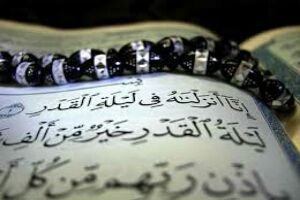 إِنَّا أَنزَلْنَٰهُ فِى لَيْلَةِ ٱلْقَدْرِ
لَيْلَةُ ٱلْقَدْرِ خَيْرٌ مِّنْ أَلْفِ
رَبِّهِم مِّن كُلِّ